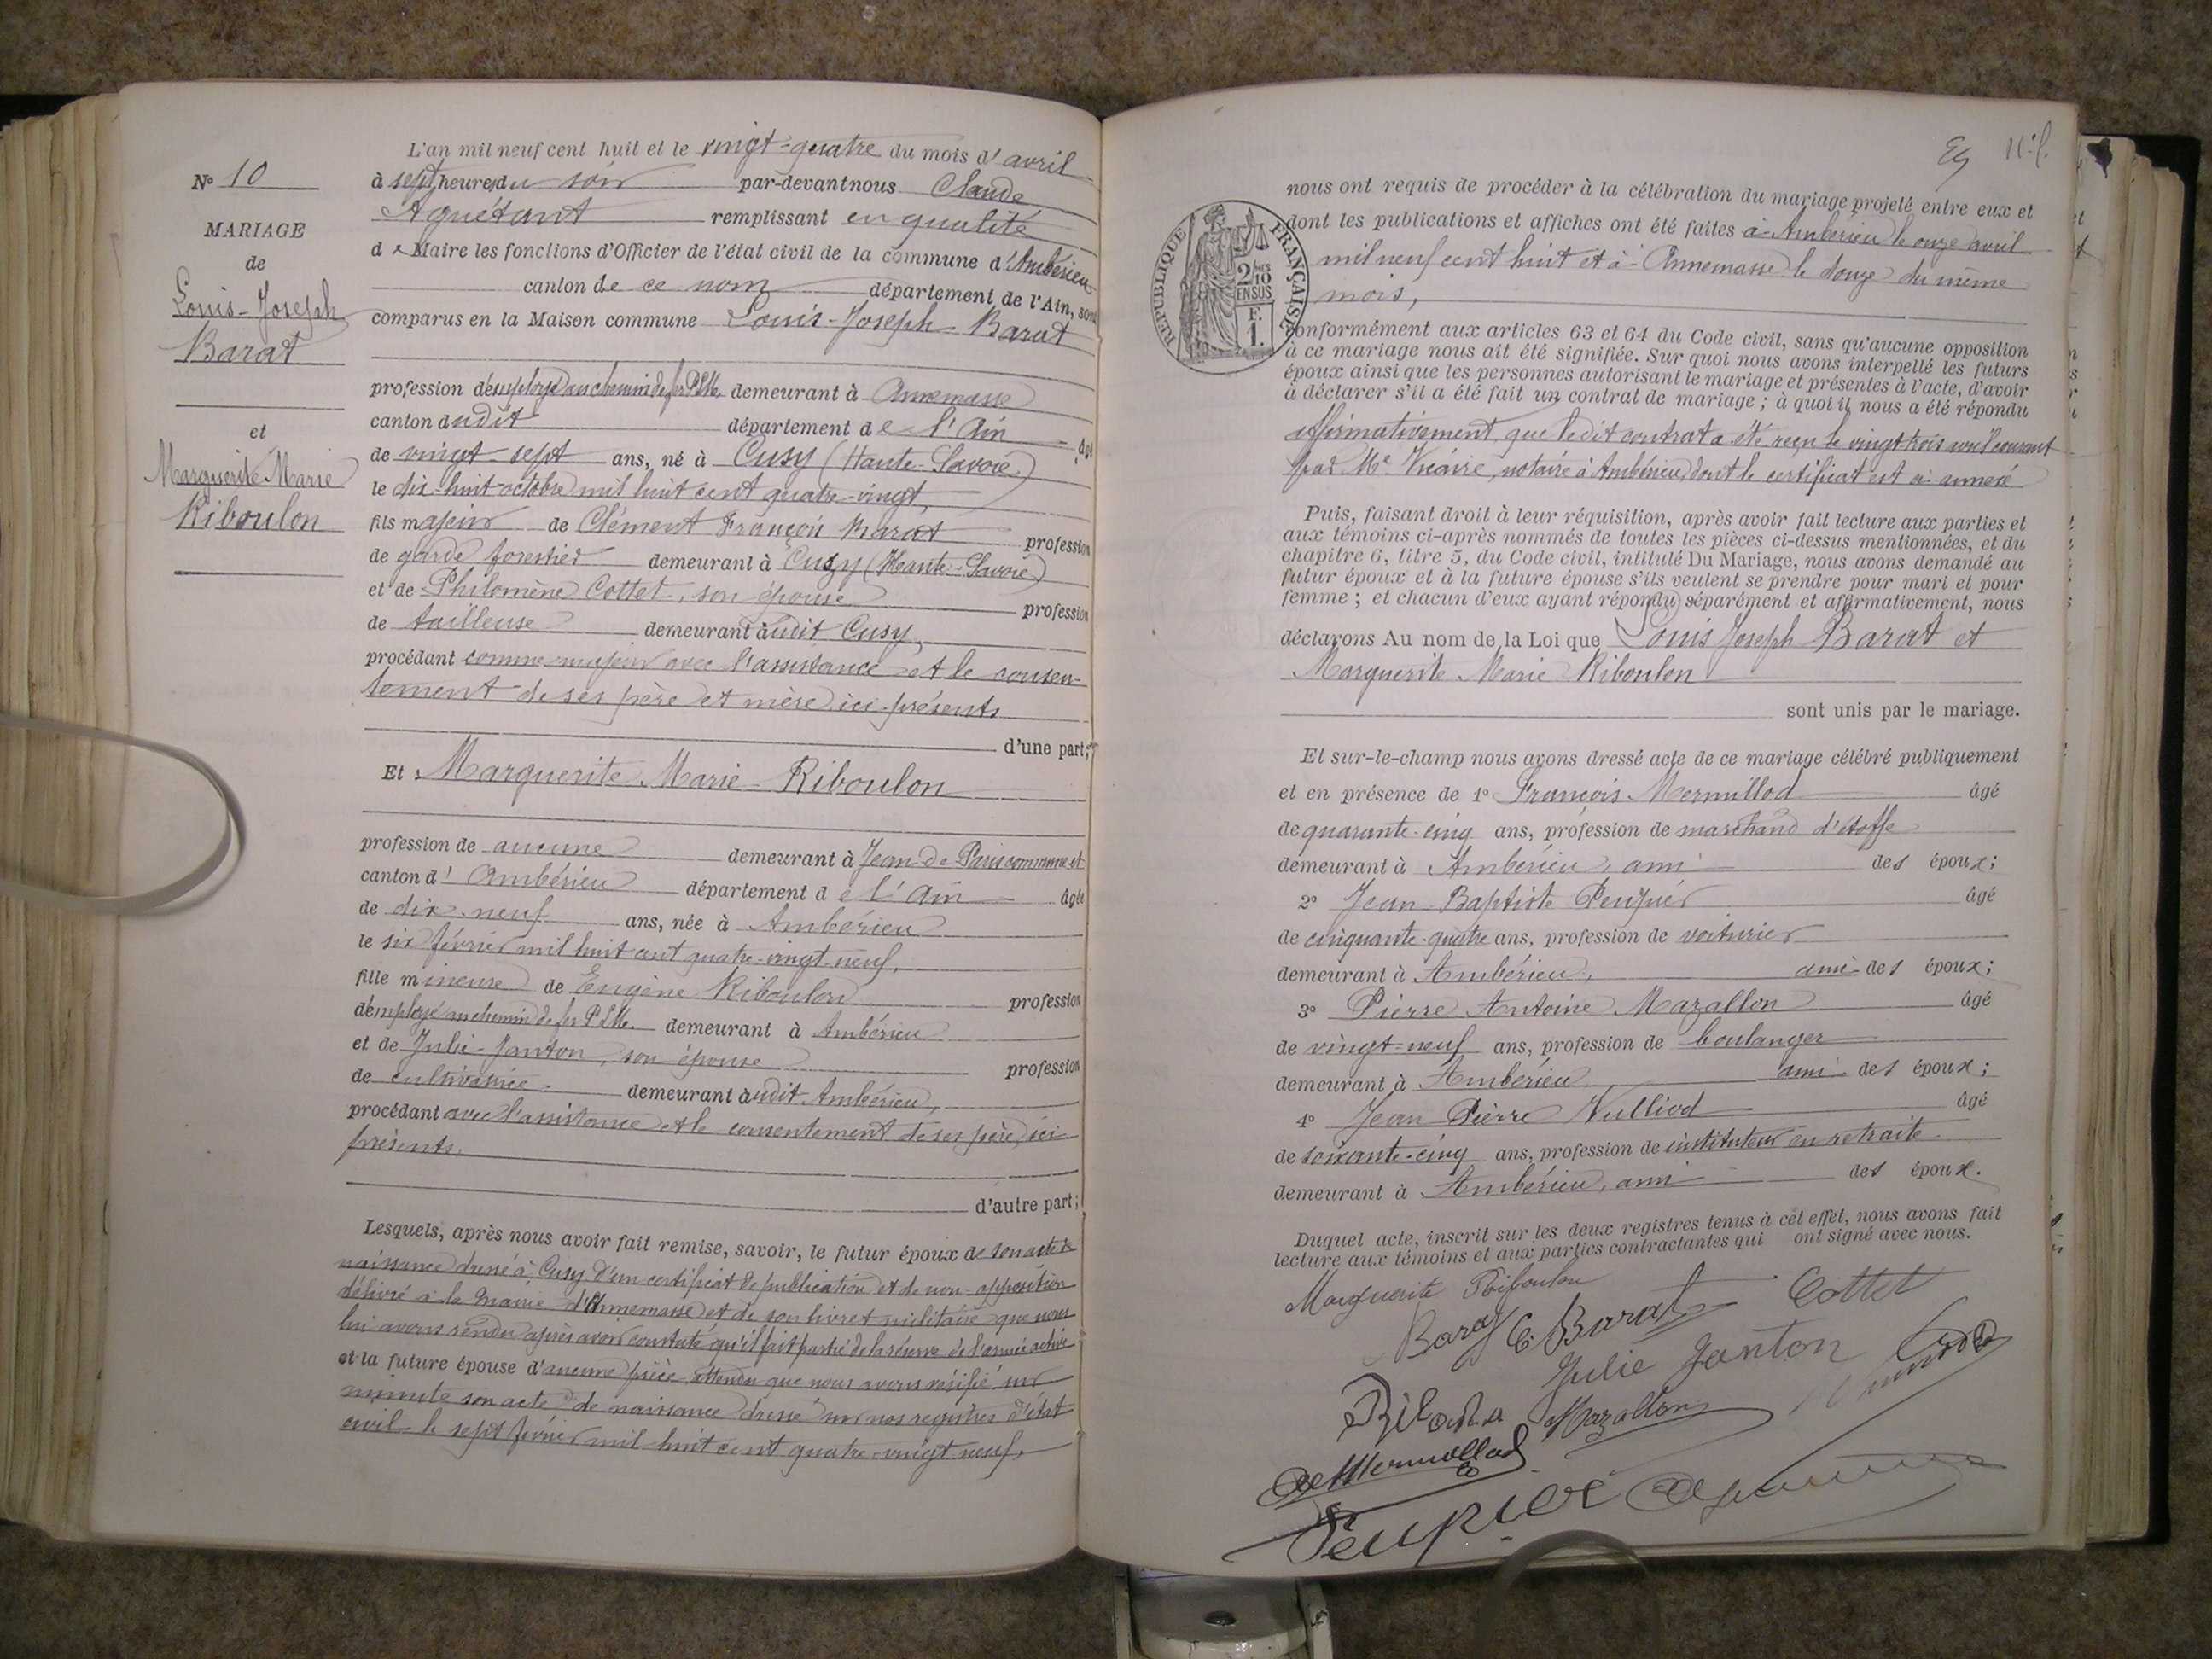 L'an mil neuf cent huit et le vingt-quatre du mois d'avril
N° 10
à sept heures du soir par-devant nous Claude
Aguétant remplissant en qualité
MARIAGE
de Maire les fonctions d'Officier de l'état civil de la commune d'Ambérieu
de
canton de ce nom département de l'Ain, sont
Louis-Joseph
Barat
comparus en la Maison commune Louis-Joseph Barat
profession d'employé au chemin de fer PLM. demeurant à Annemasse
canton dudit département de l'Ain âgé
et
de vingt-sept ans, né à Cusy (Haute-Savoie)
Marguerite Marie
Riboulon
le dix-huit octobre mil huit cent quatre-vingt,
fils majeur de Clément François Barat profession
de garde forestier demeurant à Cusy (Haute-Savoie)
et de Philomène Cottet, son épouse profession
de tailleuse demeurant audit Cusy,
procédant comme majeur avec l'assistance et le consen-
tement de ses père et mère ici présents
d'une part;
Et Marguerite Marie Riboulon
profession de aucune demeurant à Jean-de-Paris commune et
canton d'Ambérieu département de l'Ain âgée
de dix-neuf ans, née à Ambérieu
le six février mil huit cent quatre-vingt-neuf,
fille mineure de Eugène Riboulon profession
d'employé au chemin de fer PLM. demeurant à Ambérieu
et de Julie Janton, son épouse profession
de cultivatrice. demeurant audit Ambérieu,
procédant avec l'assistance et le consentement de ses père, ici
présents.
d'autre part;
Lesquels, après nous avoir fait remise, savoir, le futur époux de son acte de
naissance dressé à Cusy d'un certificat de publication et de non-opposition
délivré à la Mairie d'Annemasse et de son livret militaire que nous
lui avons rendu après avoir constaté qu'il fait partie de la réserve de l'armée active
et la future épouse d'aucune pièce attendu que nous avons vérifié sur
minute son acte de naissance dressé sur nos registres d'état
civil le sept février mil huit cent quatre-vingt neuf,
nous ont requis de procéder à la célébration du mariage projeté entre eux et
dont les publications et affiches ont été faites à Ambérieu le onze avril
mil neuf cent huit et à Annemasse le douze du même
mois,
RÉPUBLIQUE FRANÇAISE
2/10 EN SUS
F. 1.
conformément aux articles 63 et 64 du Code civil, sans qu'aucune opposition
à ce mariage nous ait été signifiée. Sur quoi nous avons interpellé les futurs
époux ainsi que les personnes autorisant le mariage et présentes à l'acte, d'avoir
à déclarer s'il a été fait un contrat de mariage; à quoi il nous a été répondu
affirmativement, que ledit contrat a été reçu le vingt trois avril courant
par Me Vicaire, notaire à Ambérieu, dont le certificat est ci-annexé
Puis, faisant droit à leur réquisition, après avoir fait lecture aux parties et
aux témoins ci-après nommés de toutes les pièces ci-dessus mentionnées, et du
chapitre 6, titre 5, du Code civil, intitulé Du Mariage, nous avons demandé au
futur époux et à la future épouse s'ils veulent se prendre pour mari et pour
femme; et chacun d'eux ayant répondu séparément et affirmativement, nous
déclarons Au nom de la Loi que Louis Joseph Barat et
Marguerite Marie Riboulon
sont unis par le mariage.
Et sur-le-champ nous avons dressé acte de ce mariage célébré publiquement
et en présence de 1° François Mermillod âgé
de quarante-cinq ans, profession de marchand d'étoffe
demeurant à Ambérieu, ami des époux;
2° Jean-Baptiste Peupier âgé
de cinquante-quatre ans, profession de voiturier
demeurant à Ambérieu, ami des époux;
3° Pierre Antoine Mazallon âgé
de vingt-neuf ans, profession de boulanger
demeurant à Ambérieu, ami des époux;
4° Jean Pierre Vulliod âgé
de soixante-cinq ans, profession de instituteur en retraite
demeurant à Ambérieu, ami des époux.
Duquel acte, inscrit sur les deux registres tenus à cet effet, nous avons fait
lecture aux témoins et aux parties contractantes qui ont signé avec nous.
Marguerite Riboulon
Barat C. Barat Cottet
Julie Janton
Mazallon
Mermillod
Peupier